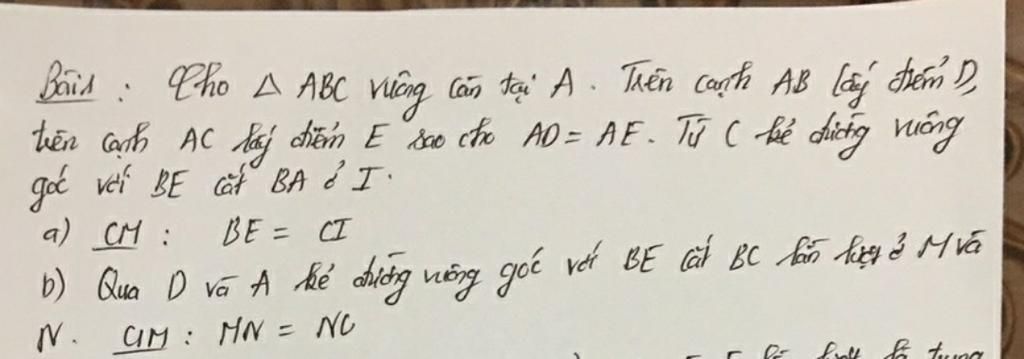 Bài 1 : Cho Δ ABC vuông cân tại A. Trên cạnh AB lấy điểm D,
trên cạnh AC lấy điểm E sao cho AD = AE. Từ C kẻ đường vuông
góc với BE cắt BA ở I.
a) CM : BE = CI
b) Qua D và A kẻ đường vuông góc với BE cắt BC lần lượt ở M và
N. CM : MN = NC